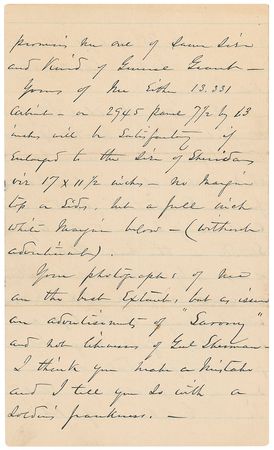 promises me one of same size
and kind of General Grant —
Yours of me Either 13.331
Cabinet — or 2945 panel 7½ by 13
inches will be Satisfactory if
enlarged to the Size of Sheridans
viz 17 x 11½ inches — no Margin
top or Sides, but a full inch
white Margin below — (without
advertisement).
Your photographs of me
are the best Extant, but as issued
are advertisements of "Sarony"
and not likenesses of Genl Sherman —
I think you make a Mistake
and I tell you So with a
Soldiers frankness. —